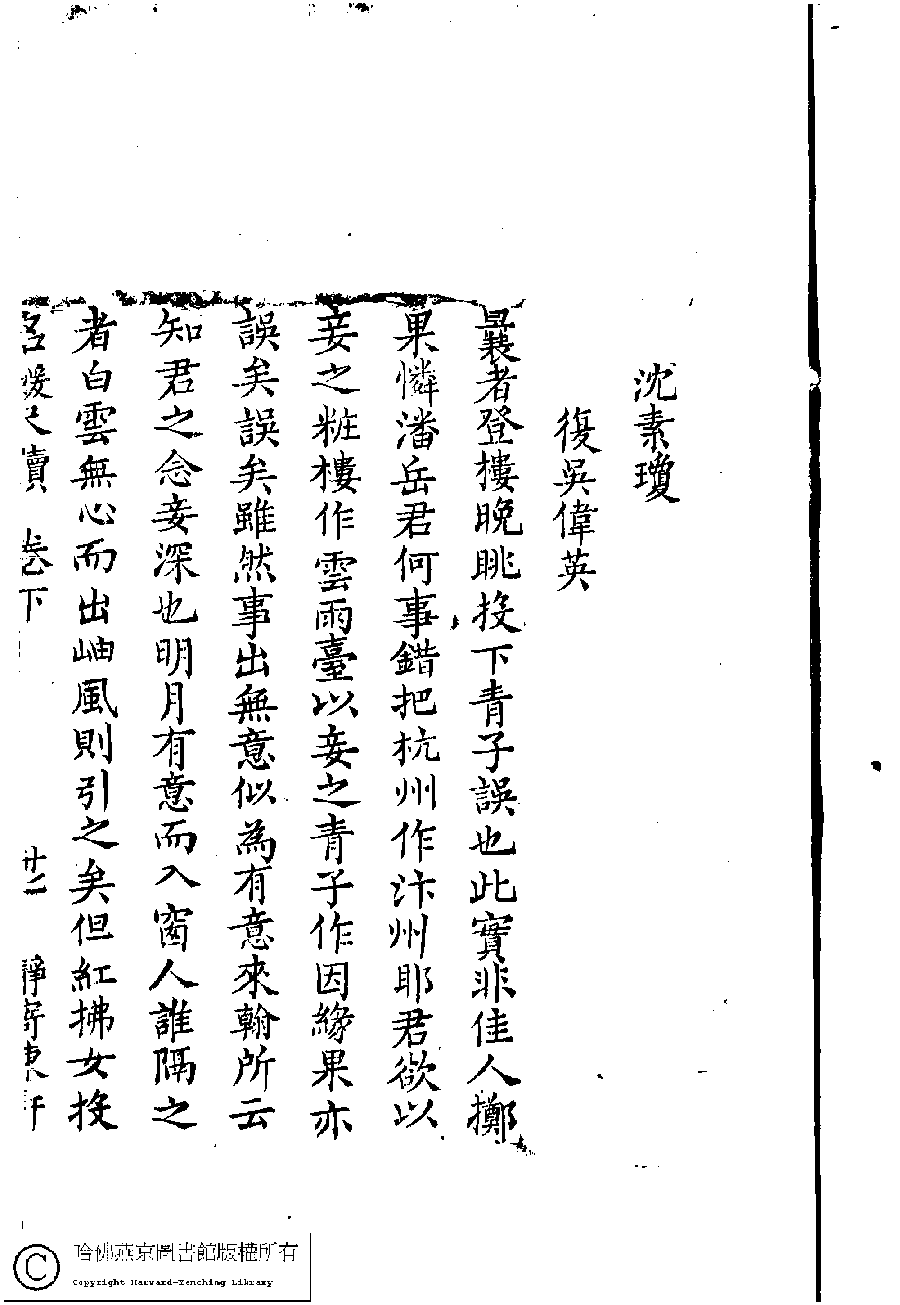 沈素瓊
復吳偉英
曩者登樓晚眺投下青子誤也此實非佳人擲
果憐潘岳君何事錯把杭州作汴州耶君欲以
妾之粧樓作雲雨臺以妾之青子作因緣果亦
誤矣誤矣雖然事出無意似為有意來翰所云
知君之念妾深也明月有意而入窗人誰隔之
者白雲無心而出岫風則引之矣但紅拂女投
名媛尺牘 卷下 廿二 靜寄東軒
哈佛燕京圖書館版權所有
Copyright Harvard-Yenching Library